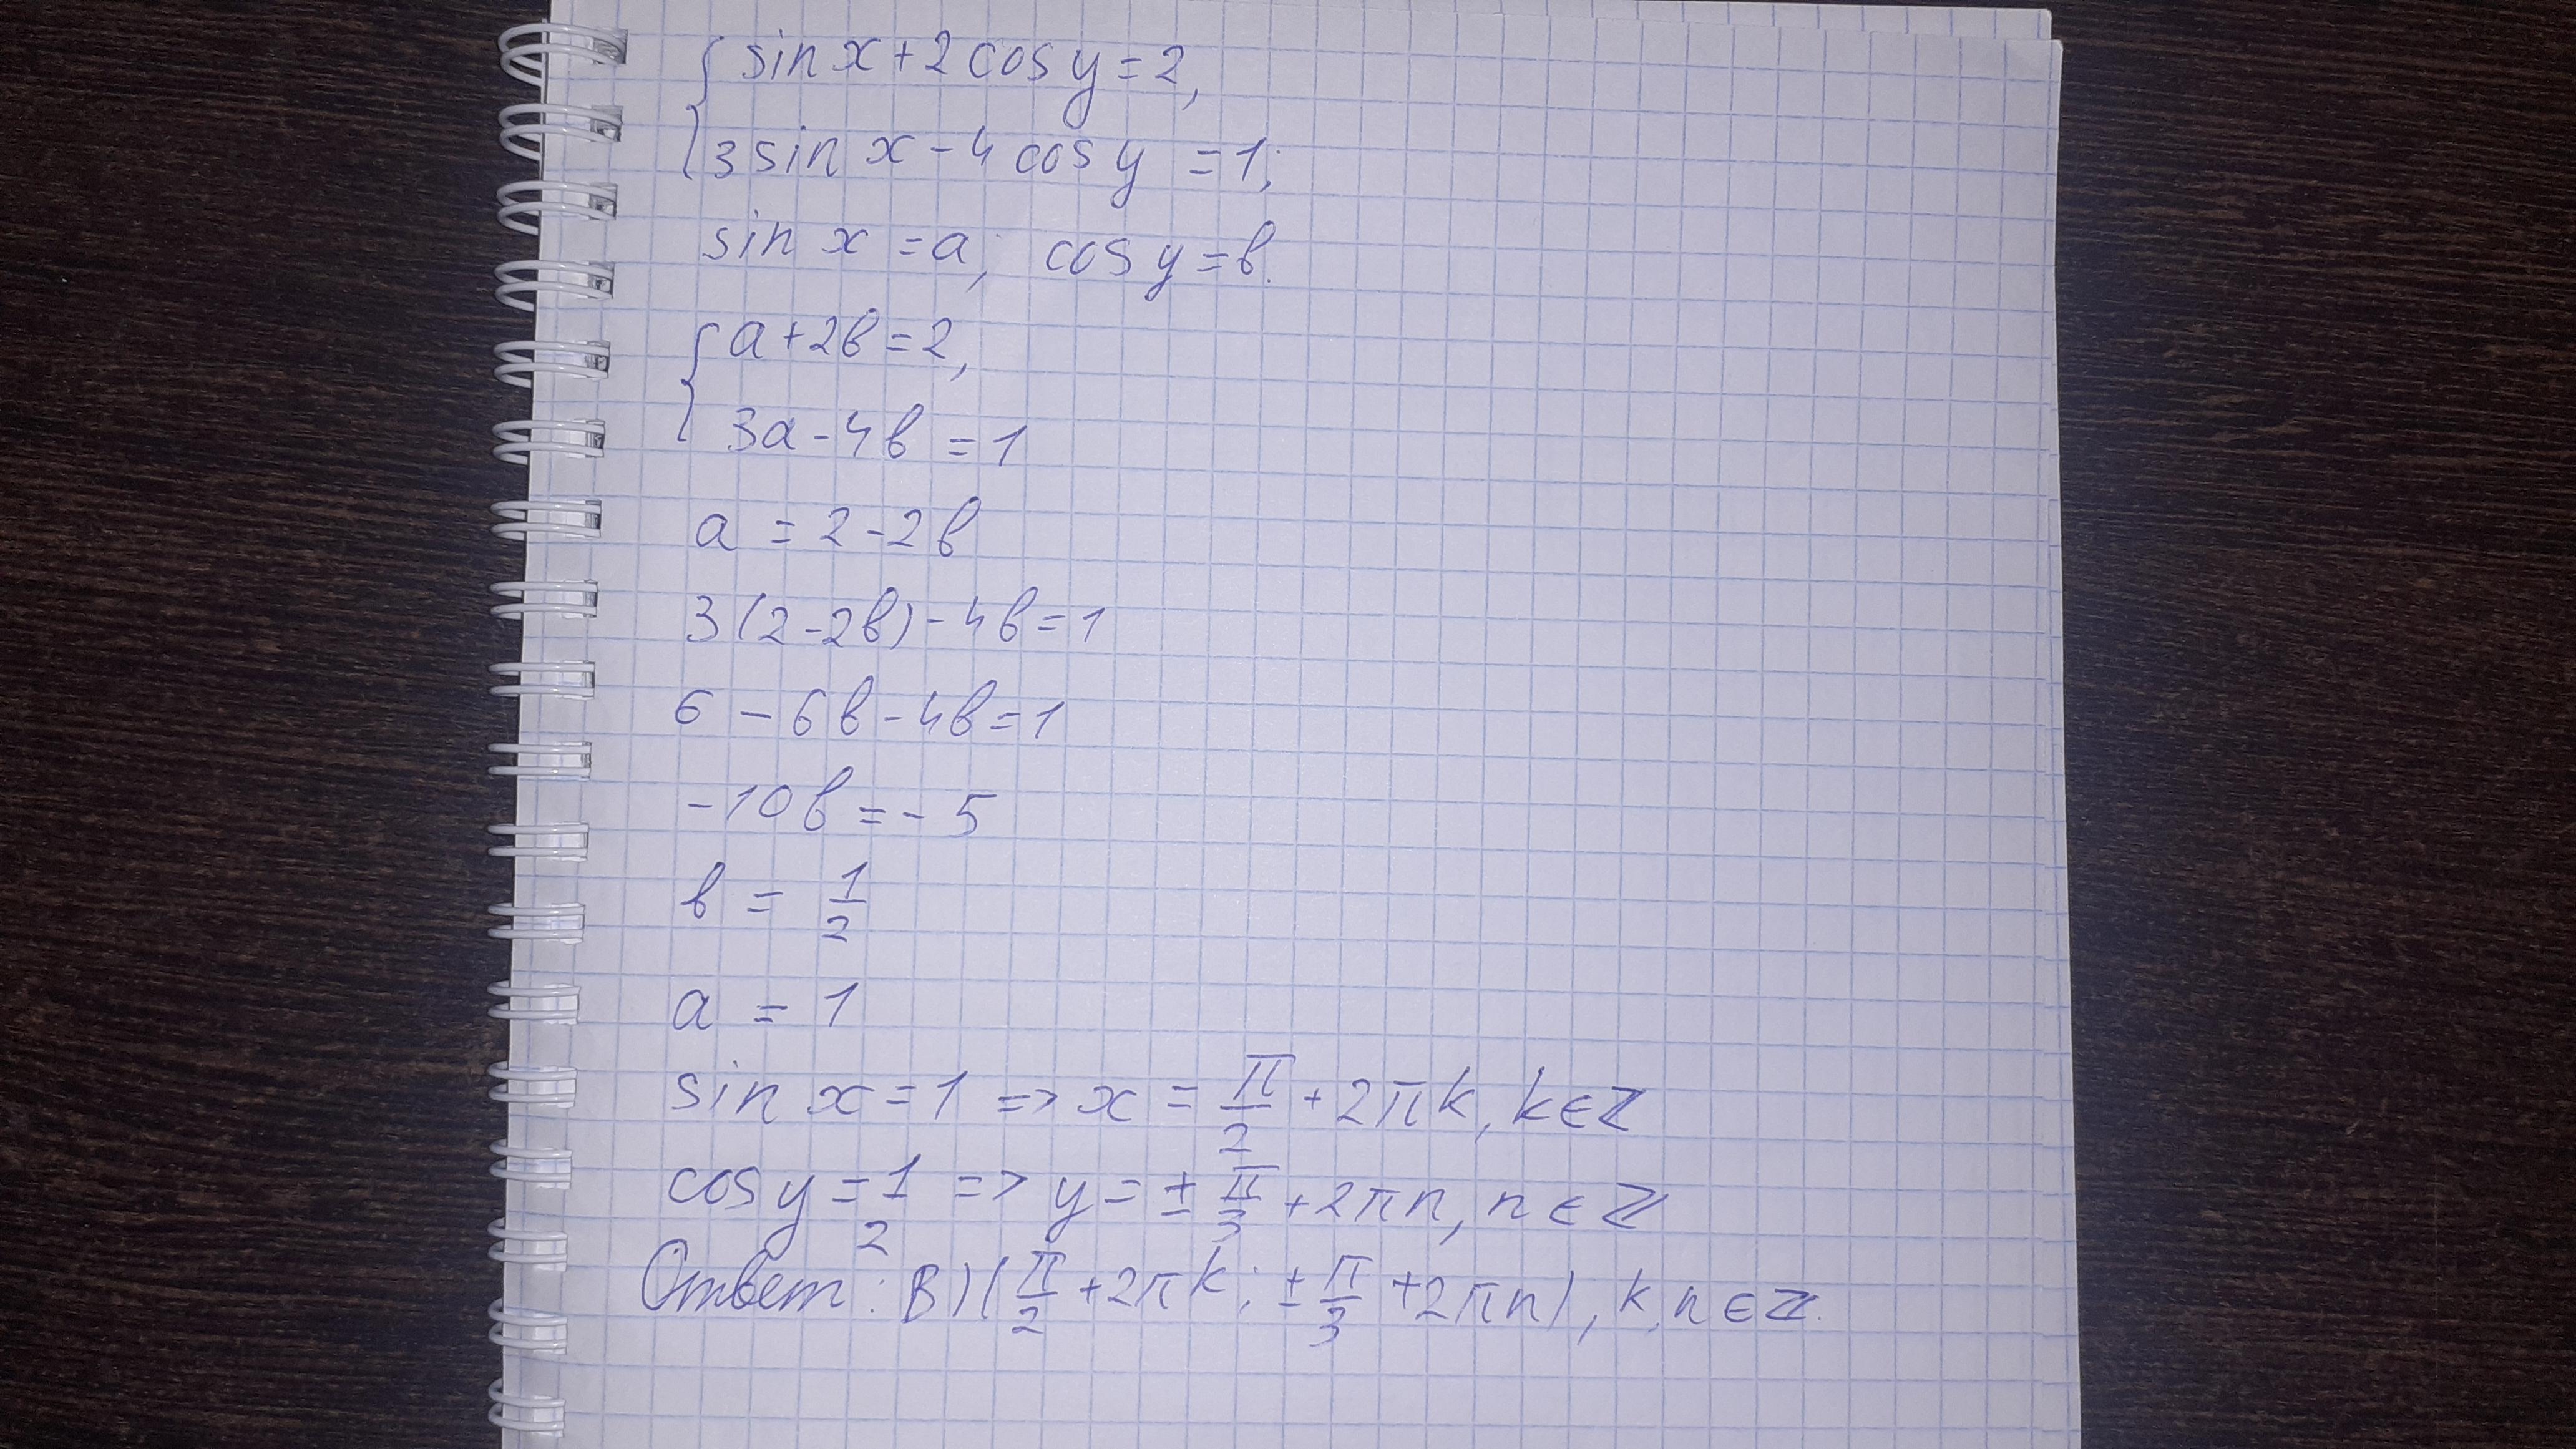 { sin x + 2 cos y = 2,
3 sin x - 4 cos y = 1;
sin x = a; cos y = в.
{ a + 2в = 2,
3a - 4в = 1
a = 2 - 2в
3(2 - 2в) - 4в = 1
6 - 6в - 4в = 1
-10в = -5
в = 1/2
a = 1
sin x = 1 => x = π/2 + 2πk, k ∈ Z
cos y = 1/2 => y = ± π/3 + 2πn, n ∈ Z
Ответ: В) (π/2 + 2πk; ± π/3 + 2πn), k, n ∈ Z.